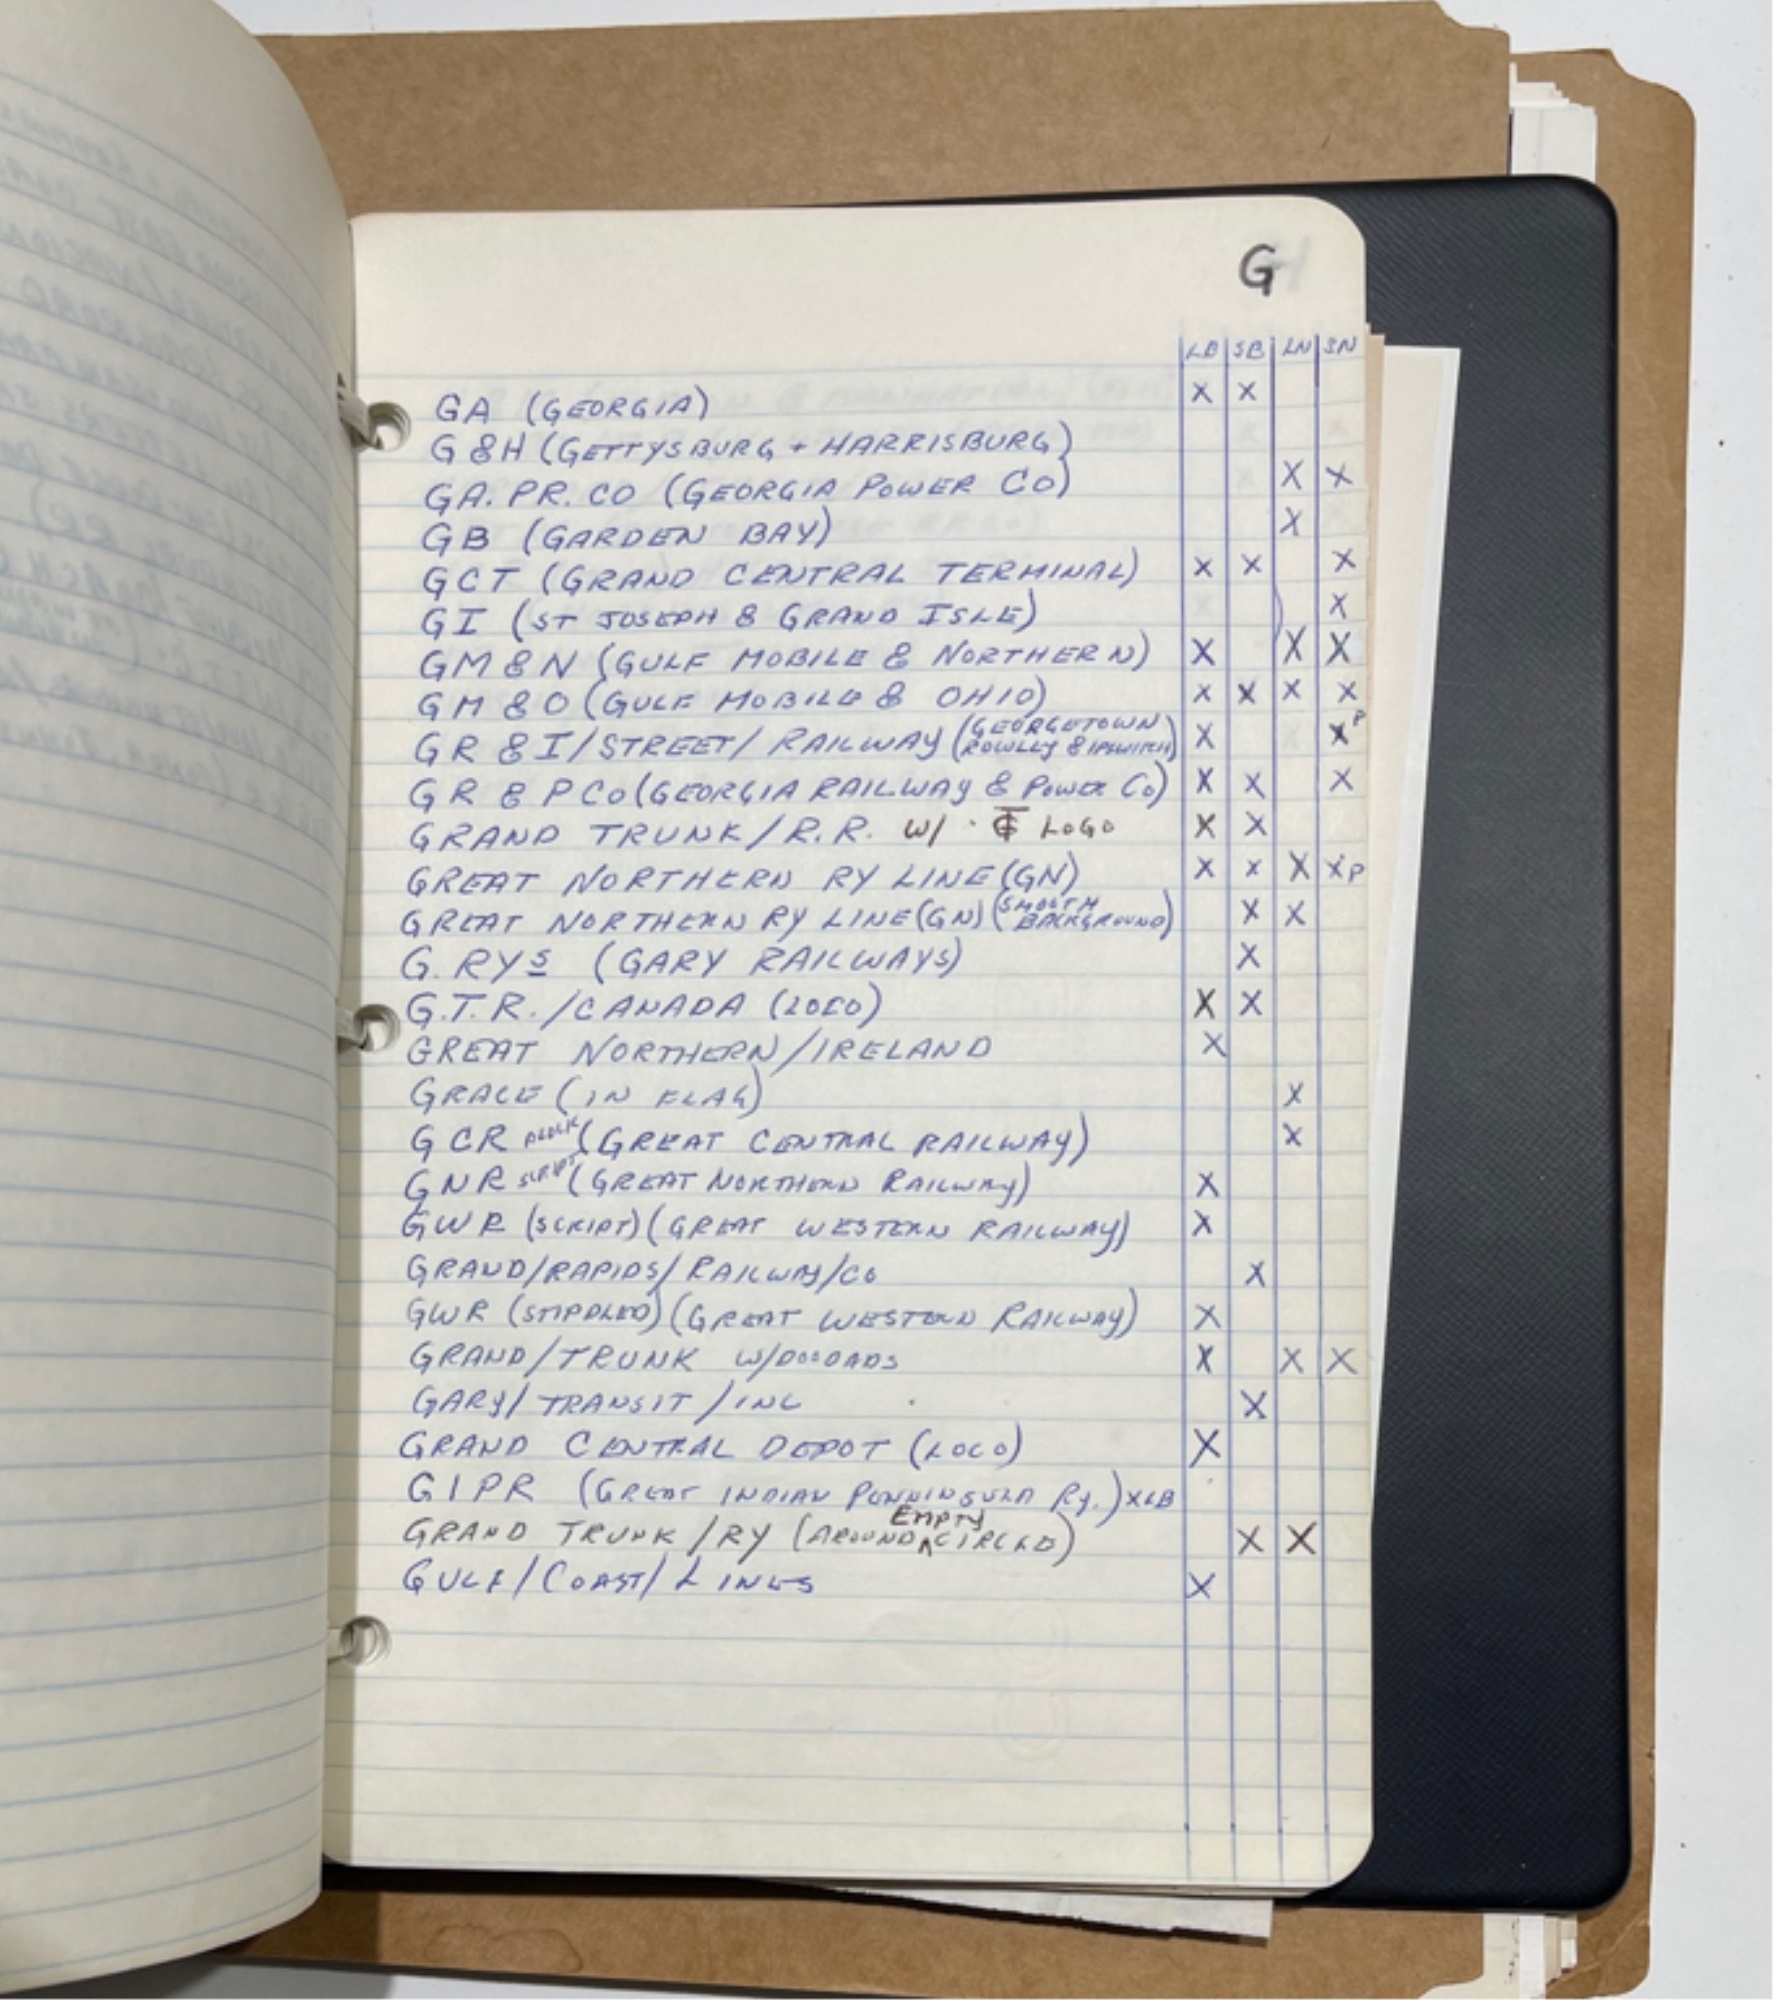 G
LB SB LN SN
GA (GEORGIA) X X
G&H (GETTYSBURG + HARRISBURG)
GA. PR. CO (GEORGIA POWER CO) X X
GB (GARDEN BAY) X
GCT (GRAND CENTRAL TERMINAL) X X X
GI (ST JOSEPH & GRAND ISLE) X
GM&N (GULF MOBILE & NORTHERN) X X X
GM&O (GULF MOBILE & OHIO) X X X X
GR&I/STREET/RAILWAY (GEORGETOWN ROWLEY & IPSWITCH) X X P
GR & P CO (GEORGIA RAILWAY & POWER CO) X X X
GRAND TRUNK/R.R. W/ · GT LOGO X X
GREAT NORTHERN RY LINE (GN) X X X X P
GREAT NORTHERN RY LINE (GN) (SMOOTH BACKGROUND) X X
G. RYS (GARY RAILWAYS) X
G.T.R./CANADA (LOCO) X X
GREAT NORTHERN/IRELAND X
GRACE (IN FLAG) X
GCR BLOCK (GREAT CENTRAL RAILWAY) X
GNR SCRIPT (GREAT NORTHERN RAILWAY) X
GWR (SCRIPT) (GREAT WESTERN RAILWAY) X
GRAND/RAPIDS/RAILWAY/CO X
GWR (STIPPLED) (GREAT WESTERN RAILWAY) X
GRAND/TRUNK W/DOODADS X X X
GARY/TRANSIT/INC X
GRAND CENTRAL DEPOT (LOCO) X
GIPR (GREAT INDIAN PENNINSULA RY.) X LB
GRAND TRUNK/RY (AROUND EMPTY CIRCLE) X X
GULF/COAST/LINES X